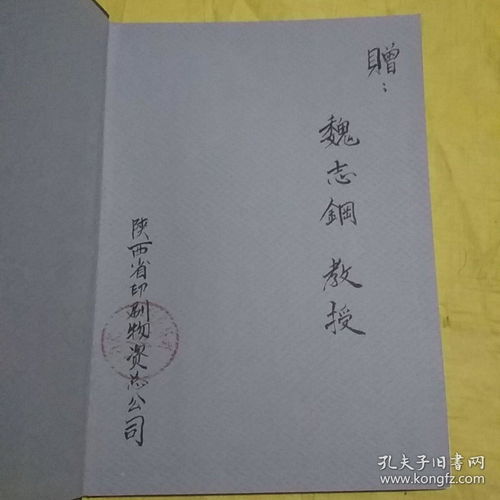 贈：
魏志鋼教授
陕西省印刷物资总公司
孔夫子旧书网
www.kongfz.com